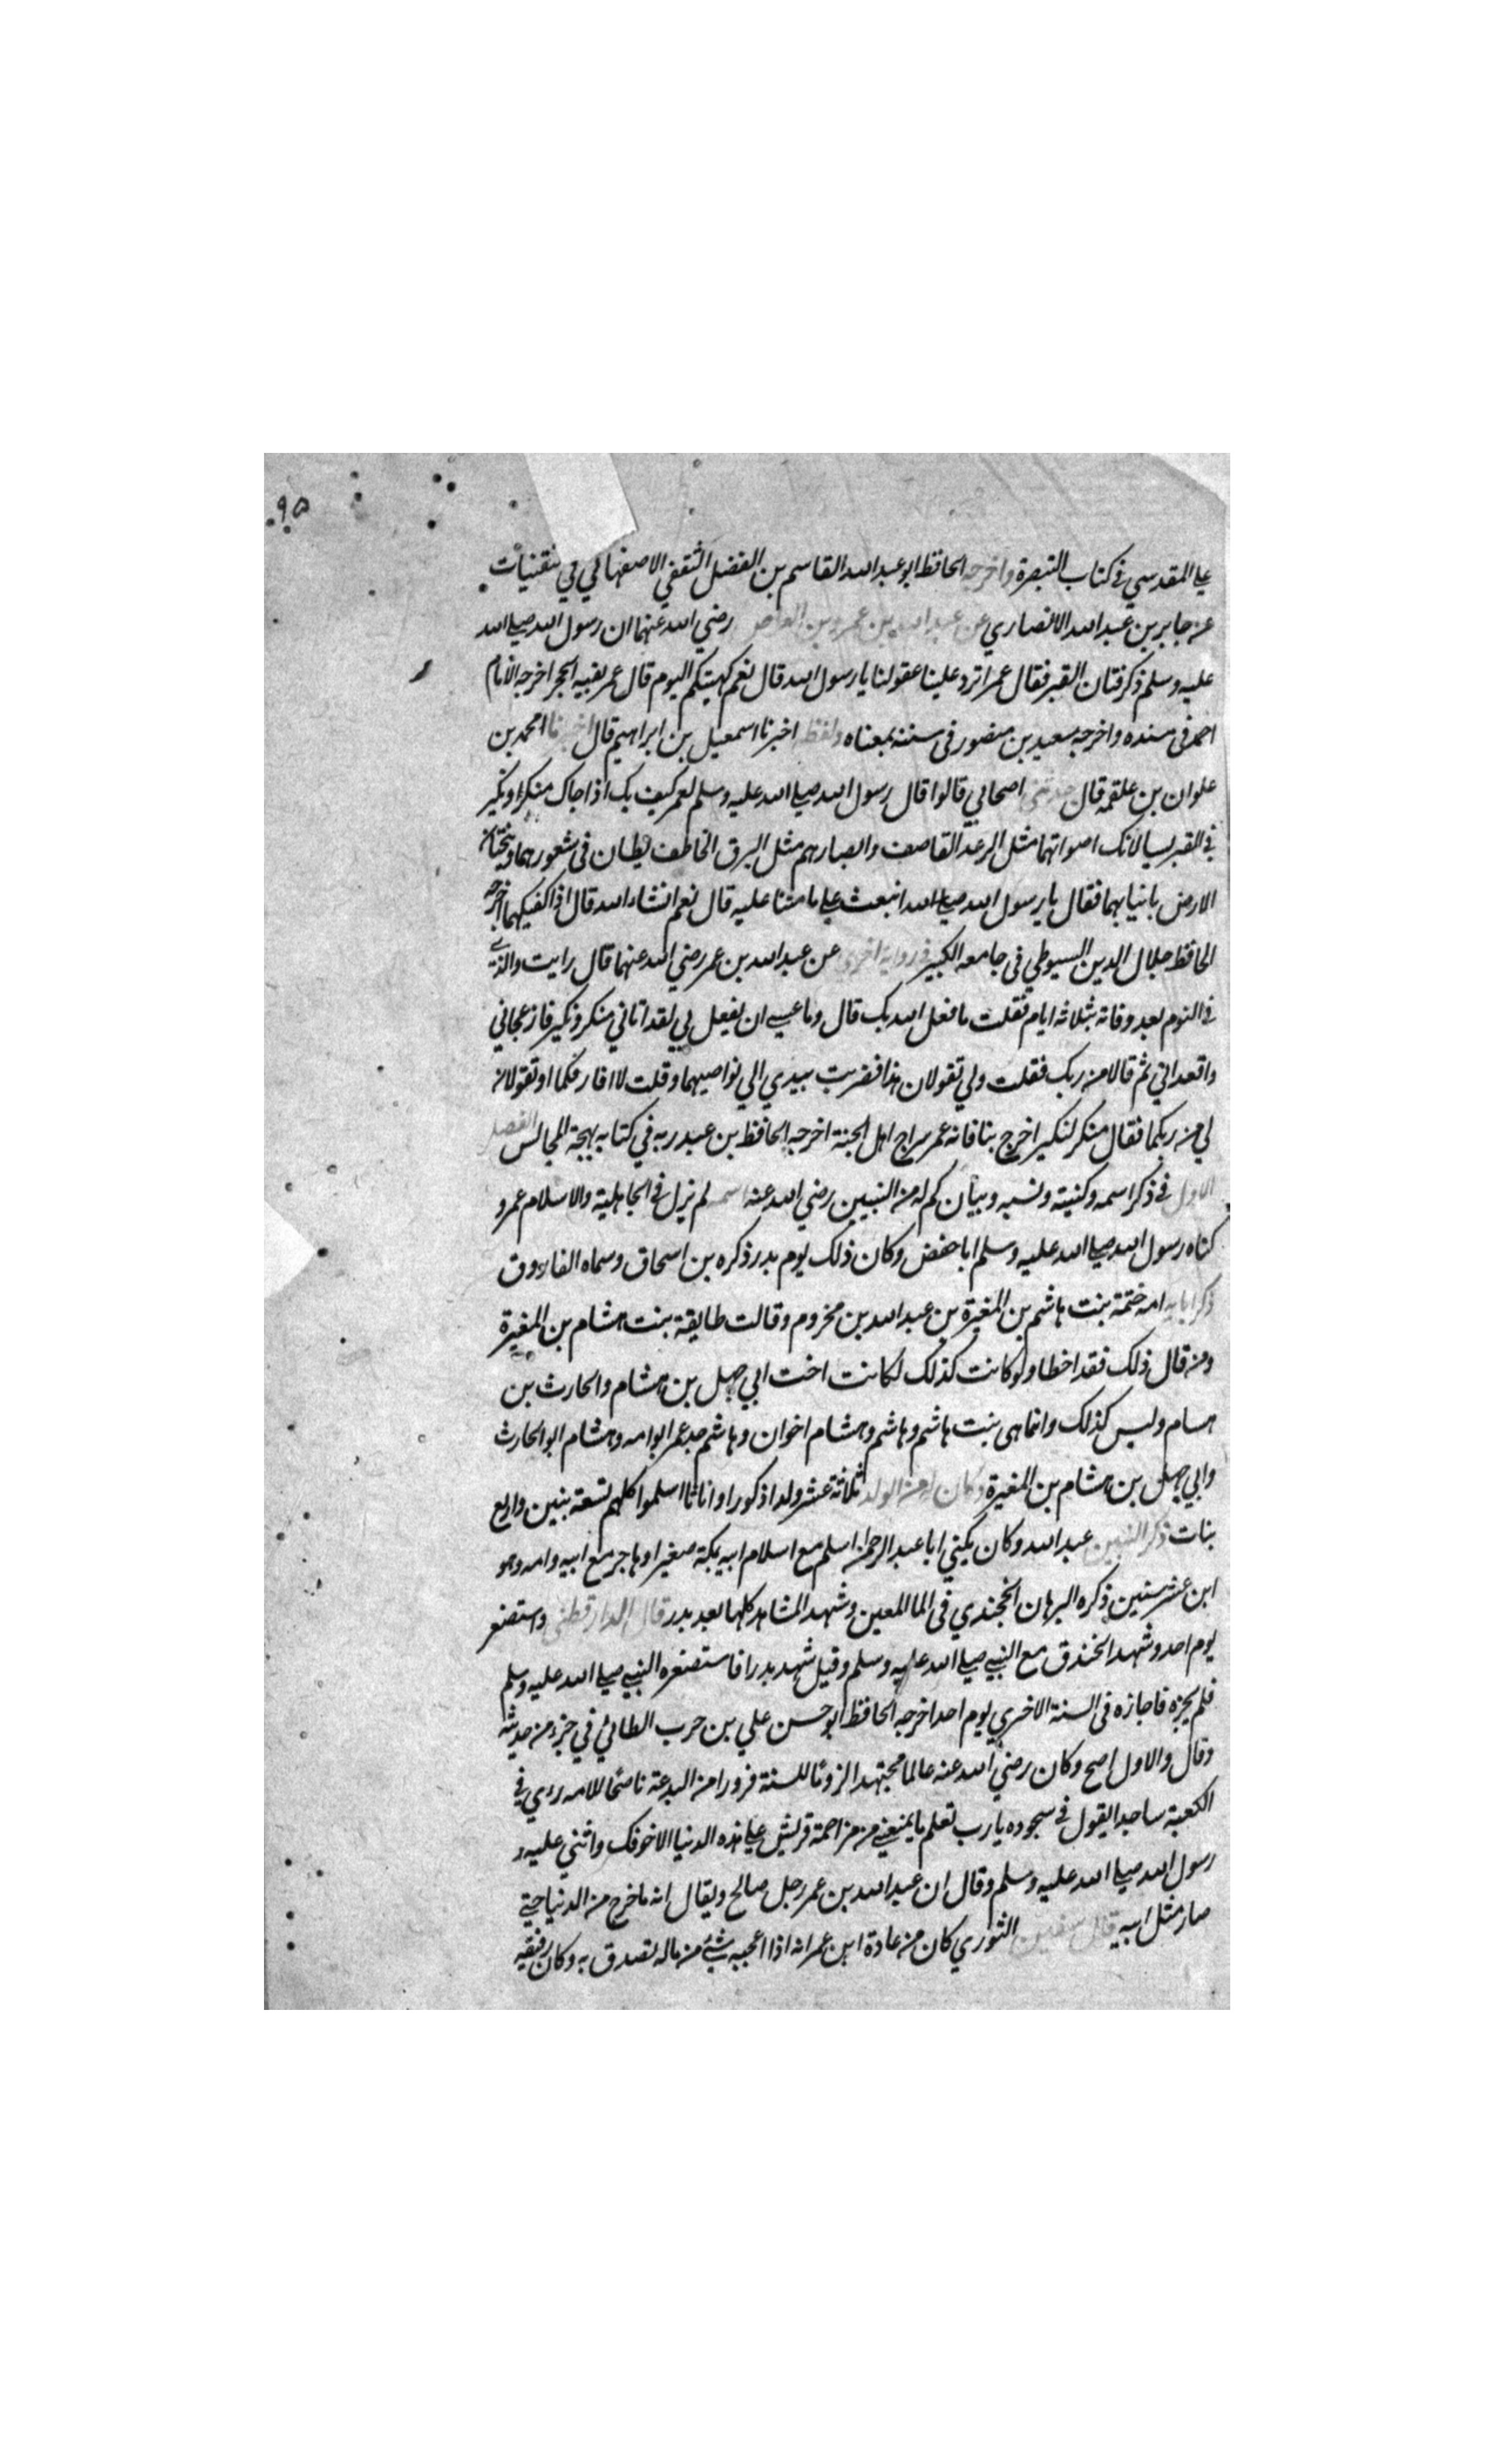 ٩٥
علي المقدسي في كتاب التبصرة واخرجه الحافظ ابو عبد الله القاسم بن الفضل الثقفي الاصفهاني في ثقفيات
عن جابر بن عبد الله الانصاري عن عبد الله بن عمرو بن العاص رضي الله عنهما ان رسول الله صلى الله
عليه وسلم ذكر فتان القبر فقال عمر اترد علينا عقولنا يا رسول الله قال نعم كهيئتكم اليوم قال عمر بفيه الحجر اخرجه الامام
احمد في مسنده واخرجه سعيد بن منصور في سننه بمعناه ولفظه اخبرنا اسمعيل بن ابراهيم قال اخبرنا محمد بن
علوان بن علقمه قال حدثني اصحابي قالوا قال رسول الله صلى الله عليه وسلم لعمر كيف بك اذا جاك منكر ونكير
في القبر يسالانك اصواتهما مثل الرعد القاصف وابصارهم مثل البرق الخاطف يطان في شعورهما ويبحثان
الارض بانيابهما فقال يا رسول الله صلى الله انبعث على ما متنا عليه قال نعم انشاء الله قال اذا اكفيكهما اخرجه
الحافظ جلال الدين السيوطي في جامعه الكبير في رواية اخرى عن عبد الله بن عمر رضي الله عنهما قال رايت والذي
في النوم بعد وفاته بثلاثه ايام فقلت ما فعل الله بك قال وما عسى ان يفعل بي لقد اتاني منكر ونكير فازعجاني
واقعداني ثم قالا من ربك فقلت ولي تقولان هذا فضربت بيدي الي نواصيهما وقلت لا افارقكما او تقولان
لي من ربكما فقال منكر لنكير اخرج بنا فانه عمر سراج اهل الجنة اخرجه الحافظ بن عبد ربه في كتابه بهجة المجالس الفصل
الاول في ذكر اسمه وكنيته ونسبه وبيان كم له من النبيين رضي الله عنه اسمه لم يزل في الجاهلية والاسلام عمرو
كناه رسول الله صلى الله عليه وسلم ابا حفص وكان ذلك يوم بدر ذكره بن اسحاق وسماه الفاروق
ذكر ابائه امه ختمة بنت هاشم بن المغيرة بن عبد الله بن مخزوم وقالت طايقة بنت هشام بن المغيرة
ومن قال ذلك فقد اخطا ولو كانت كذلك لكانت اخت ابي جهل بن هشام والحارث بن
هسام وليس كذلك وانما هي بنت هاشم وهاشم وهشام اخوان وهاشم جد عمر ابو امه وهشام ابو الحارث
وابي جهل بن هشام بن المغيرة وكان له من الولد ثلاثة عشر ولدا ذكورا واناثا اسلموا كلهم تسعة بنين واربع
بنات ذكر النبيين عبد الله وكان يكني ابا عبد الرحمن اسلم مع اسلام ابيه بمكة صغيرا وهاجر مع ابيه وامه وهو
ابن عشر سنين ذكره البرهان الخجندي في الما المعين وشهد المشاهد كلها بعد بدر قال الدارقطني واستصغر
يوم احد وشهد الخندق مع النبي صلى الله عليه وسلم وقيل شهد بدرا فاستصغره النبي صلى الله عليه وسلم
فلم يجزه فاجازه في السنة الاخري يوم احد اخرجه الحافظ ابو حسن علي بن حرب الطائي في جزء من حديثه
وقال والاول اصح وكان رضي الله عنه عالما مجتهدا لزوما للسنة فرورا من البدعة ناصحا للامه رءي في
الكعبة ساجدا يقول في سجوده يا رب تعلم ما يمنعني من مزاحمة قريش على هذه الدنيا الا خوفك واثني عليه
رسول الله صلى الله عليه وسلم وقال ان عبد الله بن عمر رجل صالح ويقال انه ما خرج من الدنيا حتي
صار مثل ابيه قال سفين الثوري كان من عادة ابن عمر انه اذا اعجبه شئ من ماله تصدق به وكان رفيقه